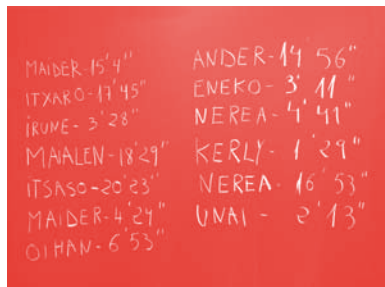 MAIDER-15'4"
ITXARO-17'45"
IRUNE-3'28"
MAIALEN-18'29"
ITSASO-20'23"
MAIDER-4'24"
OIHAN-6'53"
ANDER-14'56"
ENEKO-3'11"
NEREA-4'41"
KERLY-1'29"
NEREA-16'53"
UNAI-2'13"